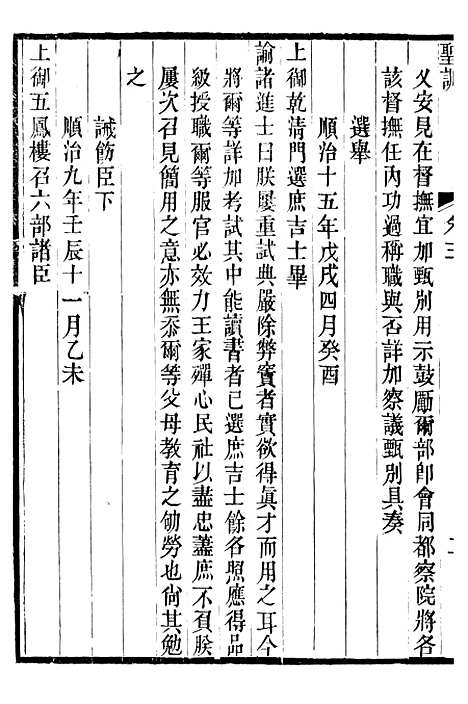 聖訓
乂安見在督撫宜加甄別用示鼓勵爾部即會同都察院將各
該督撫任內功過稱職與否詳加察議甄別具奏
選舉
順治十五年戊戌四月癸酉
上御乾清門選庶吉士畢
諭諸進士曰朕屢重試典嚴除弊竇者實欲得眞才而用之耳今
將爾等詳加考試其中能讀書者已選庶吉士餘各照應得品
級授職爾等服官必效力王家殫心民社以盡忠藎庶不負朕
屢次召見簡用之意亦無忝爾等父母教育之劬勞也尚其勉
之
誡飭臣下
順治九年壬辰十一月乙未
上御五鳳樓召六部諸臣